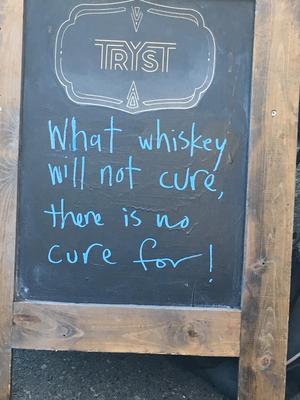 TRYST
What whiskey
will not cure,
there is no
cure for!